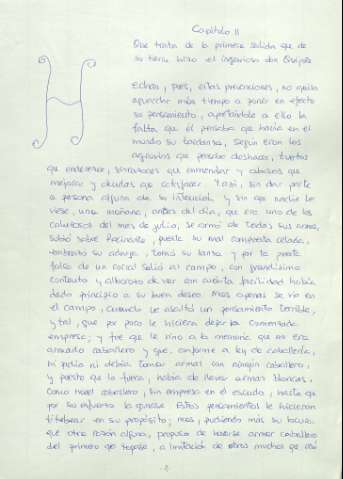 Capítulo II
Que trata de la primera salida que de
su tierra hizo el ingenioso don Quijote
H
Echas, pues, estas prevenciones, no quiso
aguardar más tiempo a poner en efecto
su pensamiento, apretándole a ello la
falta que él pensaba que hacía en el
mundo su tardanza, según eran los
agravios que pensaba deshacer, tuertos
que enderezar, sinrazones que enmendar y abusos que
mejorar y deudas que satisfacer. Y así, sin dar parte
a persona alguna de su intención y sin que nadie le
viese, una mañana, antes del día, que era uno de los
calurosos del mes de julio, se armó de todas sus armas,
subió sobre Rocinante, puesta su mal compuesta celada,
embrazó su adarga, tomó su lanza y por la puerta
falsa de un corral salió al campo, con grandísimo
contento y alborozo de ver con cuánta facilidad había
dado principio a su buen deseo. Mas apenas se vio en
el campo, cuando le asaltó un pensamiento terrible,
y tal, que por poco le hiciera dejar la comenzada
empresa; y fue que le vino a la memoria que no era
armado caballero y que, conforme a ley de caballería,
ni podía ni debía tomar armas con ningún caballero,
y puesto que lo fuera, había de llevar armas blancas,
como novel caballero, sin empresa en el escudo, hasta que
por su esfuerzo la ganase. Estos pensamientos le hicieron
titubear en su propósito; mas, pudiendo más su locura
que otra razón alguna, propuso de hacerse armar caballero
del primero que topase, a imitación de otros muchos que así